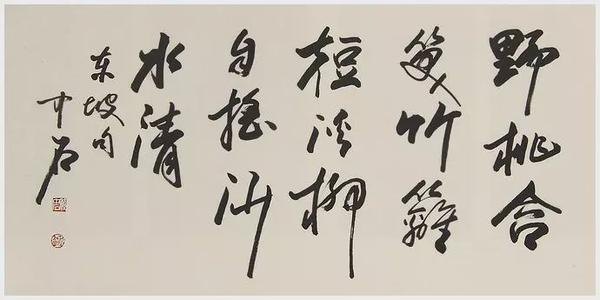 野桃含
笑竹籬
短溪柳
自搖沙
水清
东坡句
中石